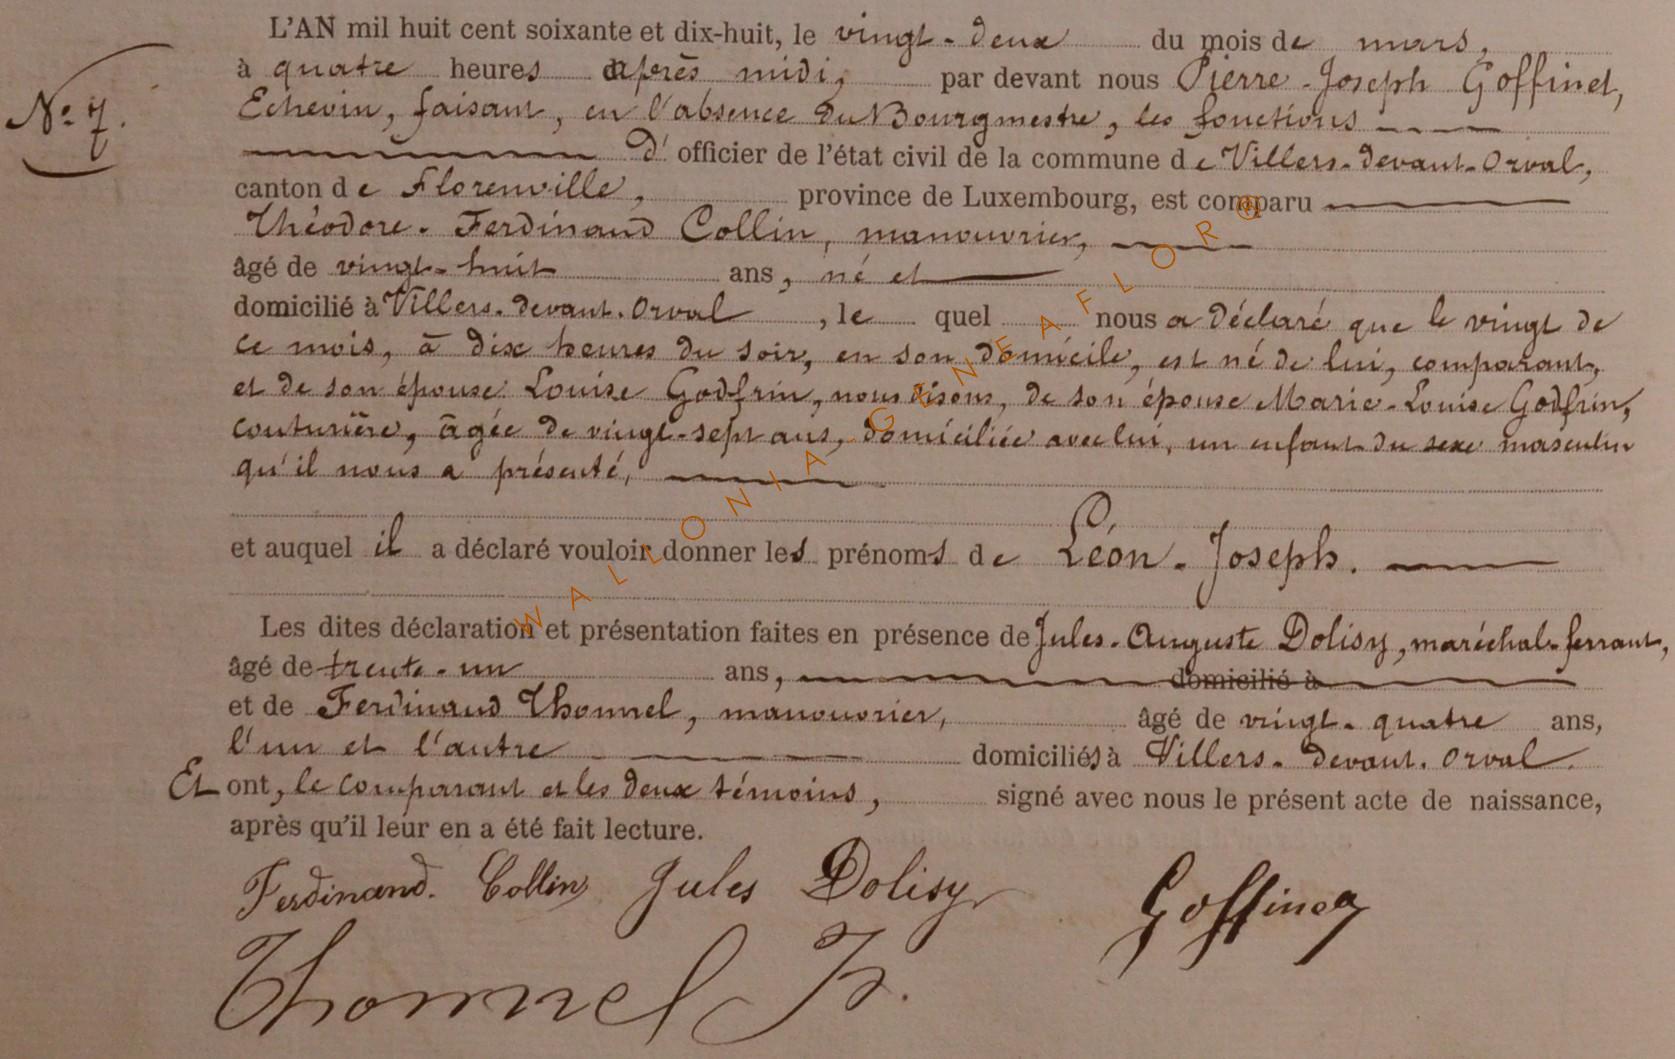 L'AN mil huit cent soixante et dix-huit, le vingt-deux du mois de mars,
à quatre heures après midi, par devant nous Pierre-Joseph Goffinet,
N° 7.
Echevin, faisant, en l'absence du Bourgmestre, les fonctions
d'officier de l'état civil de la commune de Villers-devant-Orval,
canton de Florenville, province de Luxembourg, est comparu
Théodore-Ferdinand Collin, manouvrier,
âgé de vingt-huit ans, né et
domicilié à Villers-devant-Orval, le quel nous a déclaré que le vingt de
ce mois, à dix heures du soir, en son domicile, est né de lui, comparant,
et de son épouse Louise Godfrin, nous disons, de son épouse Marie-Louise Godfrin,
couturière, âgée de vingt-sept ans, domiciliée avec lui, un enfant du sexe masculin
qu'il nous a présenté,
et auquel il a déclaré vouloir donner les prénoms de Léon-Joseph.
Les dites déclaration et présentation faites en présence de Jules-Auguste Dolisy, maréchal-ferrant,
âgé de trente-un ans, domicilié à
et de Ferdinand Thonnel, manouvrier, âgé de vingt-quatre ans,
l'un et l'autre domiciliés à Villers-devant-Orval.
Et ont, le comparant et les deux témoins, signé avec nous le présent acte de naissance,
après qu'il leur en a été fait lecture.
Ferdinand. Collin Jules Dolisy Goffinet
Thonnel F.
WALLONIA-GENEAFLOR®